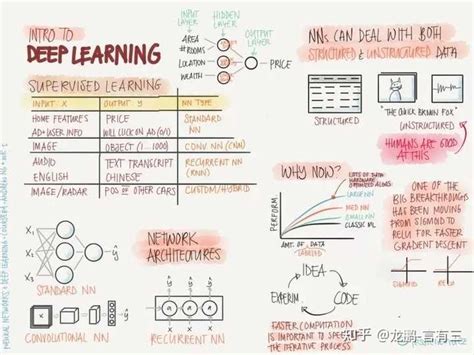 INTRO TO
DEEP LEARNING
SUPERVISED LEARNING
INPUT X OUTPUT y NN TYPE
HOME FEATURES PRICE STANDARD NN
AD+USER INFO WILL CLICK ON AD (0/1)
IMAGE OBJECT (1...1000) CONV. NN (CNN)
AUDIO TEXT TRANSCRIPT RECURRENT NN (RNN)
ENGLISH CHINESE
IMAGE/RADAR POS OF OTHER CARS CUSTOM/HYBRID
INPUT LAYER
HIDDEN LAYER
OUTPUT LAYER
AREA
#ROOMS
LOCATION
WEALTH
PRICE
NNs CAN DEAL WITH BOTH
STRUCTURED & UNSTRUCTURED DATA
STRUCTURED
"THE QUICK BROWN FOX"
UNSTRUCTURED
HUMANS ARE GOOD
AT THIS
NETWORK
ARCHITECTURES
X₁
X₂
X₃
ŷ
STANDARD NN
CONVOLUTIONAL NN
RECURRENT NN
WHY NOW?
PERFORM.
LARGE NN
MED NN
SMALL NN
CLASSIC ML
AMT. OF DATA
LABELED
IDEA
EXPERIM.
CODE
FASTER COMPUTATION
IS IMPORTANT TO SPEED UP
THE ITERATIVE PROCESS
ONE OF THE
BIG BREAKTHROUGHS
HAS BEEN MOVING
FROM SIGMOID TO
RELU FOR FASTER
GRADIENT DESCENT
SIGMOID
RELU
知乎 @龙鹏-言有三